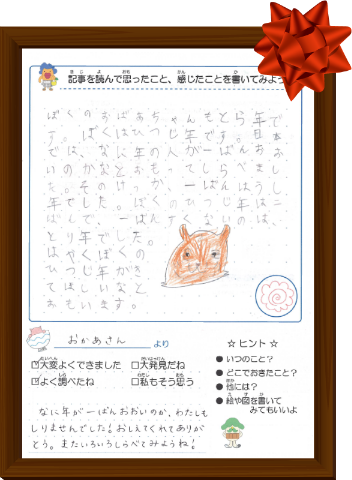 記事を読んで思ったこと、感じたことを書いてみよう
ぼくのおばあちゃんもとら年で
す。ぼくはひつじ年です。日本
では、なに年の人が一ばんおお
いのかなとおもってしらべまし
た。そのけっか、一ばんはうし
年でした。ぼくのひつじ年は二
ばんで、一ばんすくないのは、
とり年でした。
はやくぼくの
ひつじ年がき
てほしいなと
おもいます。
おかあさん より
☑大変よくできました □大発見だね
☑よく調べたね □私もそう思う
なに年が一ばんおおいのか、わたしも
しりませんでした！おしえてくれてありが
とう。またいろいろしらべてみようね！
☆ ヒント ☆
● いつのこと？
● どこでおきたこと？
● 他には？
● 絵や図を書いて
みてもいいよ